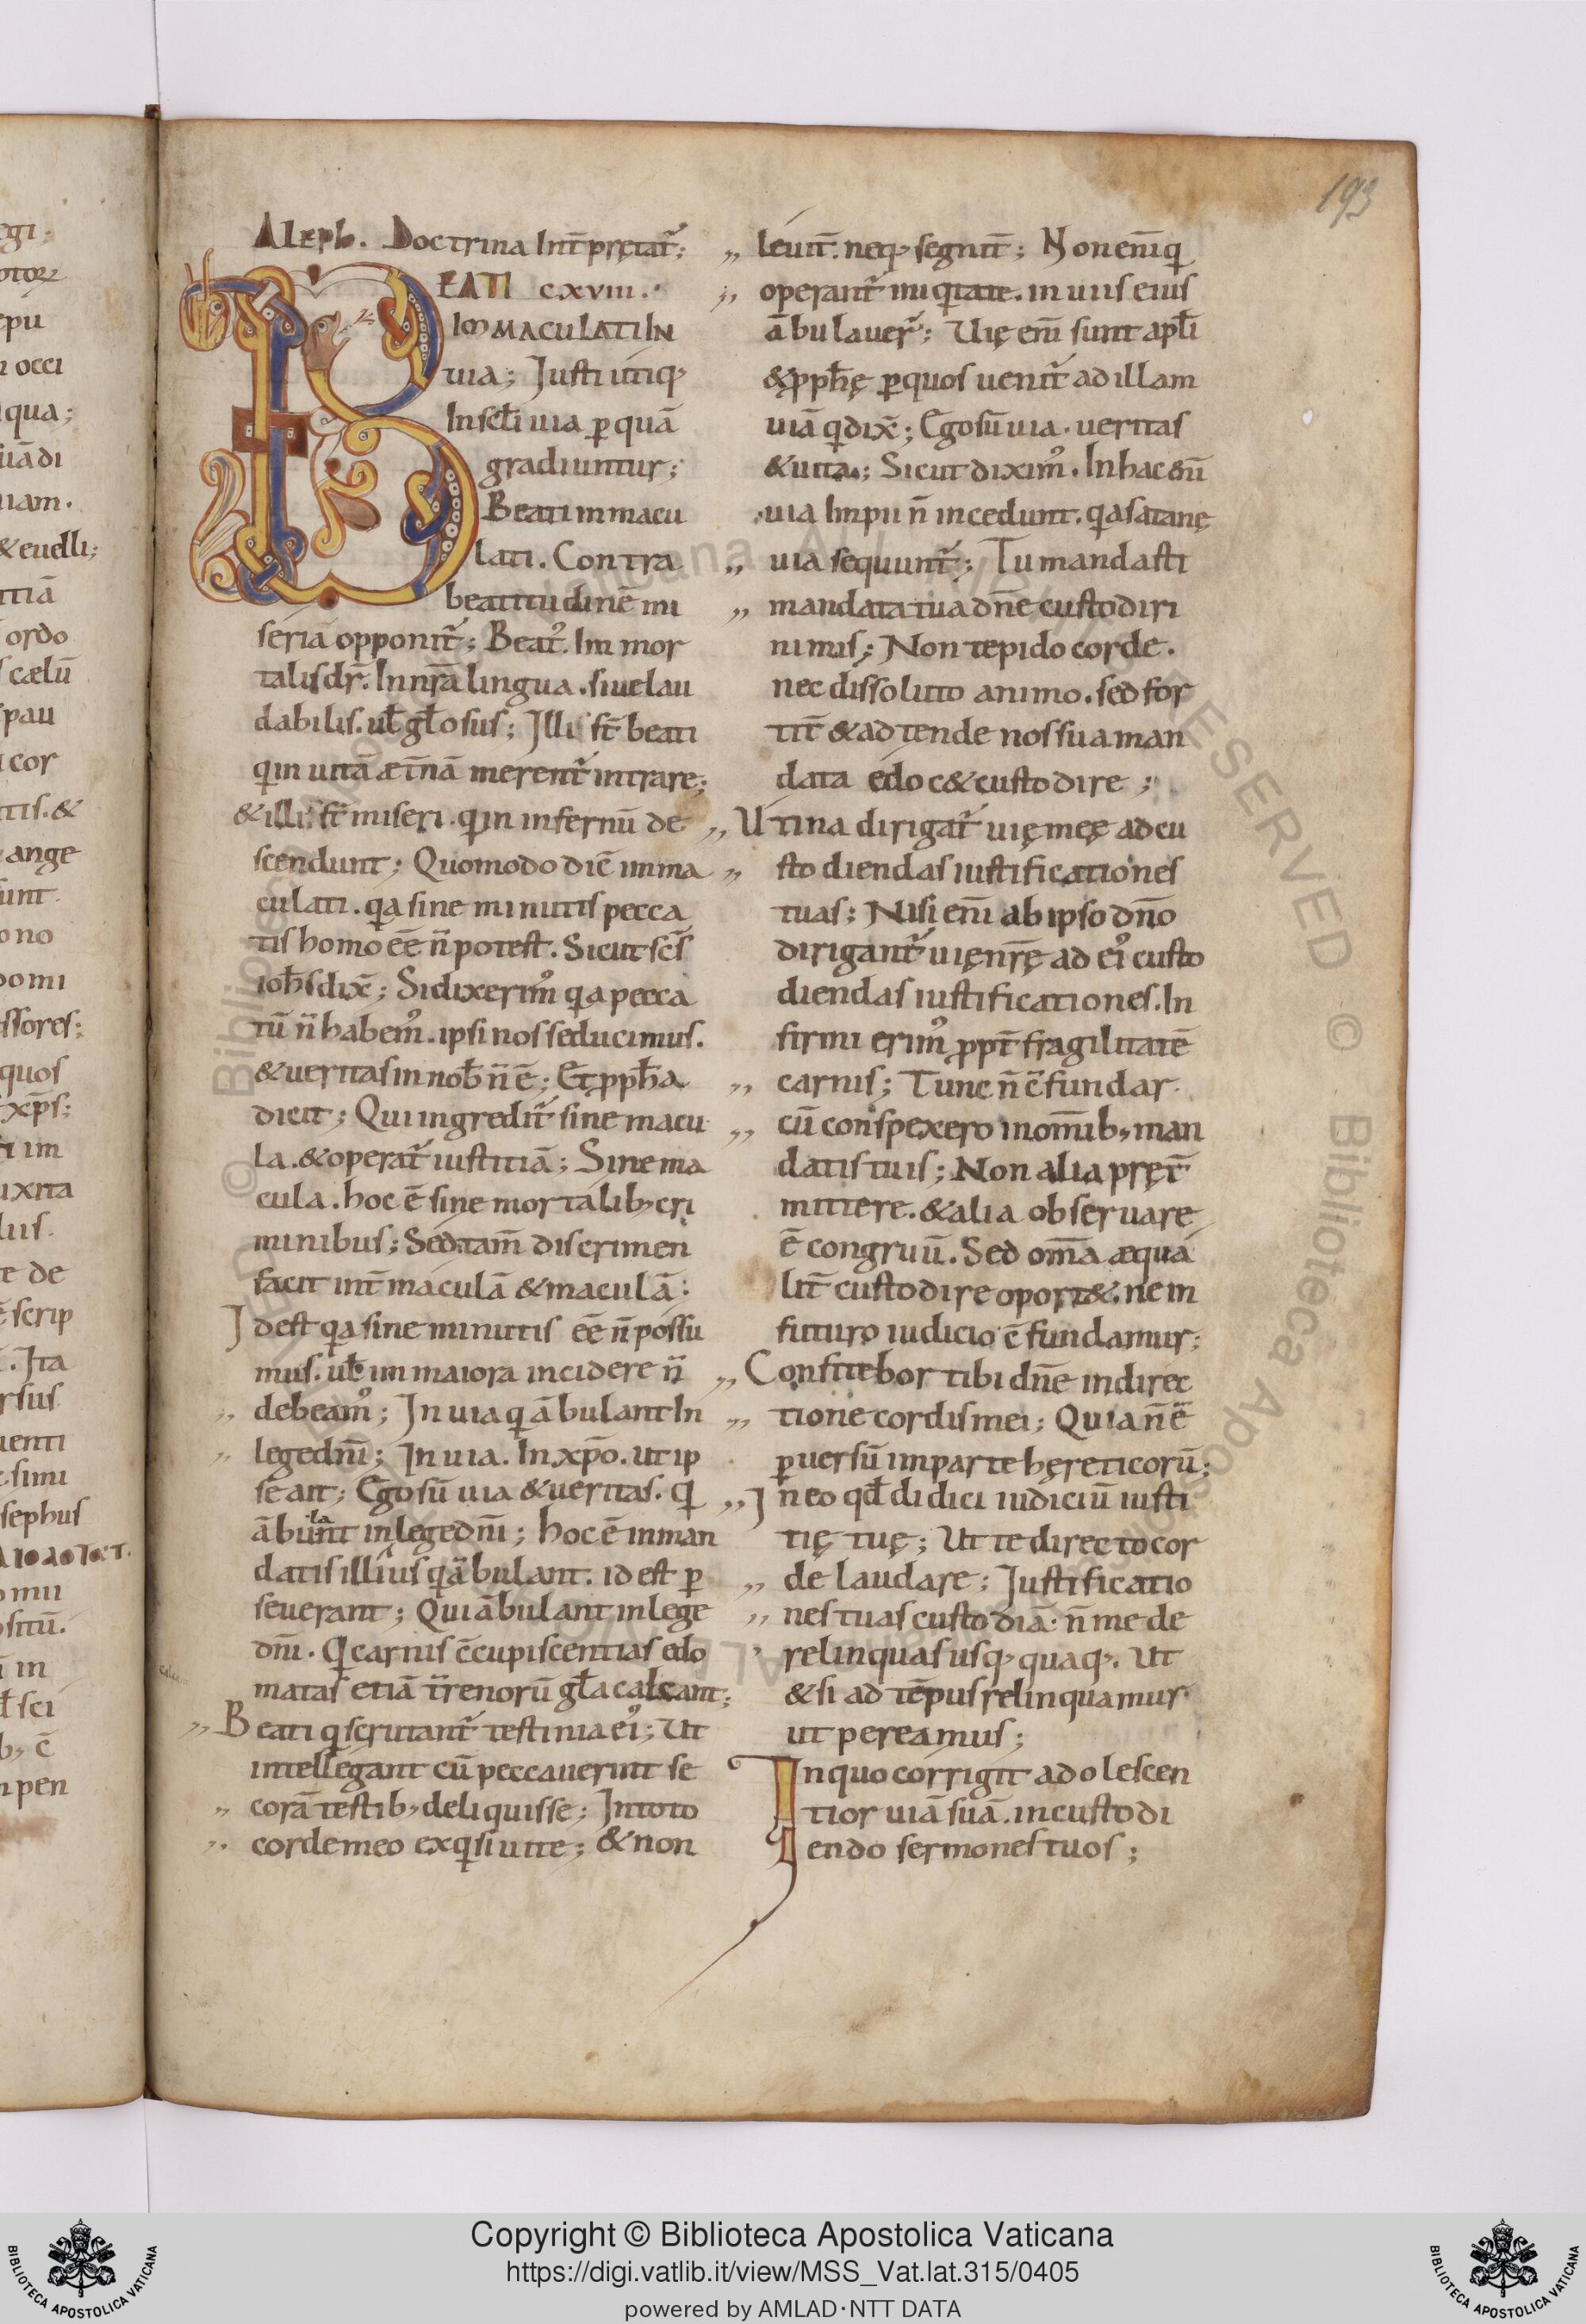 193
Aleph. Doctrina Int̄prętat᷑;
BEATI CXVIII.
IMMACULATI IN
uia; Iusti utiq;
In scł̄i uia ꝑ quā
gradiuntur;
Beati inmacu
lati. Contra
beatitudinē mi
seria opponit᷑; Beat᷒. Im mor
talis dr̄. In nr̄a lingua. siue lau
dabilis. uł gło sus; Illi st̄ beati
q̇ in uitā æt̄nā merent᷑ intrare;
& illi st̄ miseri. q̇ in infernū de
scendunt; Quomodo diē imma
culati. qa sine minutis pecca
tis homo eē n̄ potest. Sicut scs̄
ioħs dix̄; Si dixerim᷒ qa pecca
tū n̄ habem᷒. ipsi nos seducimus.
& ueritas in nob̄ n̄ ē; Et ꝓpħa
dicit; Qui ingredit᷑ sine macu
la. & operat᷑ iustitiā; Sine ma
cula. hoc ē sine mortalib; cri
minibus; Sed tam̄ discrimen
facit int̄ maculā & maculā;
Id est qa sine minutis eē n̄ possu
mus. uł im maiora incidere n̄
debeam᷒; In uia q̇ ābulant In
lege dn̄i; In uia. In xp̄o. ut ip
se ait; Ego sū uia & ueritas. q̇
ābulant in lege dn̄i; hoc ē in man
datis illius q̇ ābulant. id est ꝑ
seuerant; Qui ābulant in lege
dn̄i. Q̇ carnis c̄cupiscentias edo
matas etiā t̄renorū gła calcant;
Beati q̇ scrutant᷑ testimia ei᷒; Ut
intellegant cū peccauerint se
corā testib; deliquisse; In toto
corde meo exq̇siui te; & non
leuit̄. neq; segnit̄; Non eni̅ q̇
operant᷑ iniq̇tate. in uiis eius
ābulauer̄; Uię eni̅ sunt apłi
& ꝓpħę ꝑ quos uenit᷑ ad illam
uiā q̇ dix̄; Ego sū uia. ueritas
& uita; Sicut dixim᷒. In hac eni̅
uia Impii n̄ incedunt. qa satanę
uia sequunt᷑; Tu mandasti
mandata tua dn̄e custodiri
nimis; Non tepido corde.
nec dissoluto animo. sed for
tit̄ & ad tende nos sua man
data edoc& custodire;
Utina dirigat᷑ uię meę ad cu
stodiendas iustificationes
tuas; Nisi eni̅ ab ipso dn̄o
dirigant᷑ uię nr̄ę ad ei᷒ custo
diendas iustificationes. In
firmi erim᷒ ꝓpt̄ fragilitatē
carnis; Tunc n̄ c̄fundar
cū conspexero in omīb; man
datis tuis; Non alia pręt̄
mittere. & alia obseruare
ē congruū. Sed om̄a æqua
lit̄ custodire oport&. ne in
futuro iudicio c̄fundamur;
Confitebor tibi dn̄e in direc
tione cordis mei; Quia n̄ ē
ꝑuersū im parte hęreticorū;
In eo qđ didici iudiciū iusti
tię tuę; Ut te directo cor
de laudare; Iustificatio
nes tuas custodiā. n̄ me de
relinquas usq; quaq;. Ut
& si ad tēpus relinquamur
ut pereamus;
In quo corrigit adolescen
tior uiā suā. in custodi
endo sermones tuos;
Copyright © Biblioteca Apostolica Vaticana
https://digi.vatlib.it/view/MSS_Vat.lat.315/0405
powered by AMLAD·NTT DATA
BIBLIOTECA APOSTOLICA VATICANA
BIBLIOTECA APOSTOLICA VATICANA